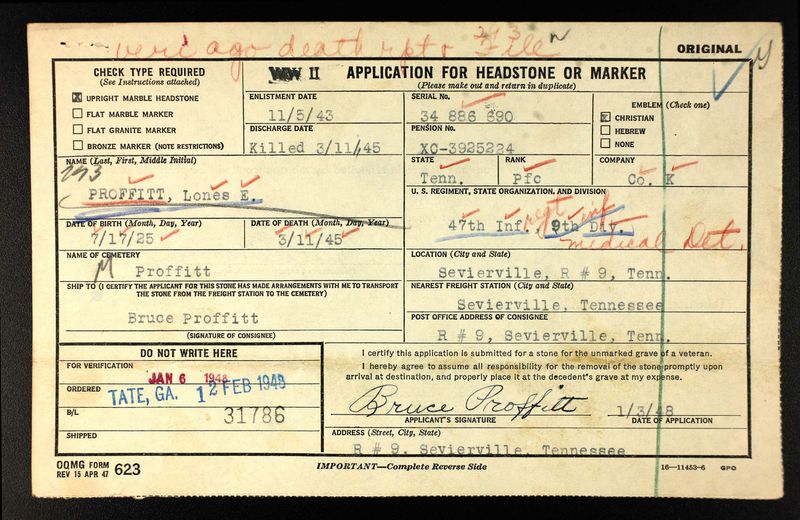 veri ago death rpt & 293 File
ORIGINAL
CHECK TYPE REQUIRED
(See Instructions attached)
UPRIGHT MARBLE HEADSTONE
FLAT MARBLE MARKER
FLAT GRANITE MARKER
BRONZE MARKER (NOTE RESTRICTIONS)
WW II APPLICATION FOR HEADSTONE OR MARKER
(Please make out and return in duplicate)
ENLISTMENT DATE
11/5/43
DISCHARGE DATE
Killed 3/11/45
SERIAL No.
34 886 690
PENSION No.
XC-3925224
EMBLEM (Check one)
CHRISTIAN
HEBREW
NONE
NAME (Last, First, Middle Initial)
293
PROFFITT, Lones E.
STATE
Tenn.
RANK
Pfc
COMPANY
Co. K
U. S. REGIMENT, STATE ORGANIZATION, AND DIVISION
47th Inf. regt 9th inf Div.
medical Det.
DATE OF BIRTH (Month, Day, Year)
7/17/25
DATE OF DEATH (Month, Day, Year)
3/11/45
NAME OF CEMETERY
Proffitt
LOCATION (City and State)
Sevierville, R # 9, Tenn.
SHIP TO (I CERTIFY THE APPLICANT FOR THIS STONE HAS MADE ARRANGEMENTS WITH ME TO TRANSPORT
THE STONE FROM THE FREIGHT STATION TO THE CEMETERY)
Bruce Proffitt
(SIGNATURE OF CONSIGNEE)
NEAREST FREIGHT STATION (City and State)
Sevierville, Tennessee
POST OFFICE ADDRESS OF CONSIGNEE
R # 9, Sevierville, Tenn.
DO NOT WRITE HERE
FOR VERIFICATION
JAN 6 1948
ORDERED
TATE, GA. 12 FEB 1948
B/L
31786
SHIPPED
I certify this application is submitted for a stone for the unmarked grave of a veteran.
I hereby agree to assume all responsibility for the removal of the stone promptly upon
arrival at destination, and properly place it at the decedent's grave at my expense.
Bruce Proffitt
1/3/48
APPLICANT'S SIGNATURE
DATE OF APPLICATION
ADDRESS (Street, City, State)
R # 9, Sevierville, Tennessee
OQMG FORM
REV 15 APR 47
623
IMPORTANT—Complete Reverse Side
16—11453-6 GPO